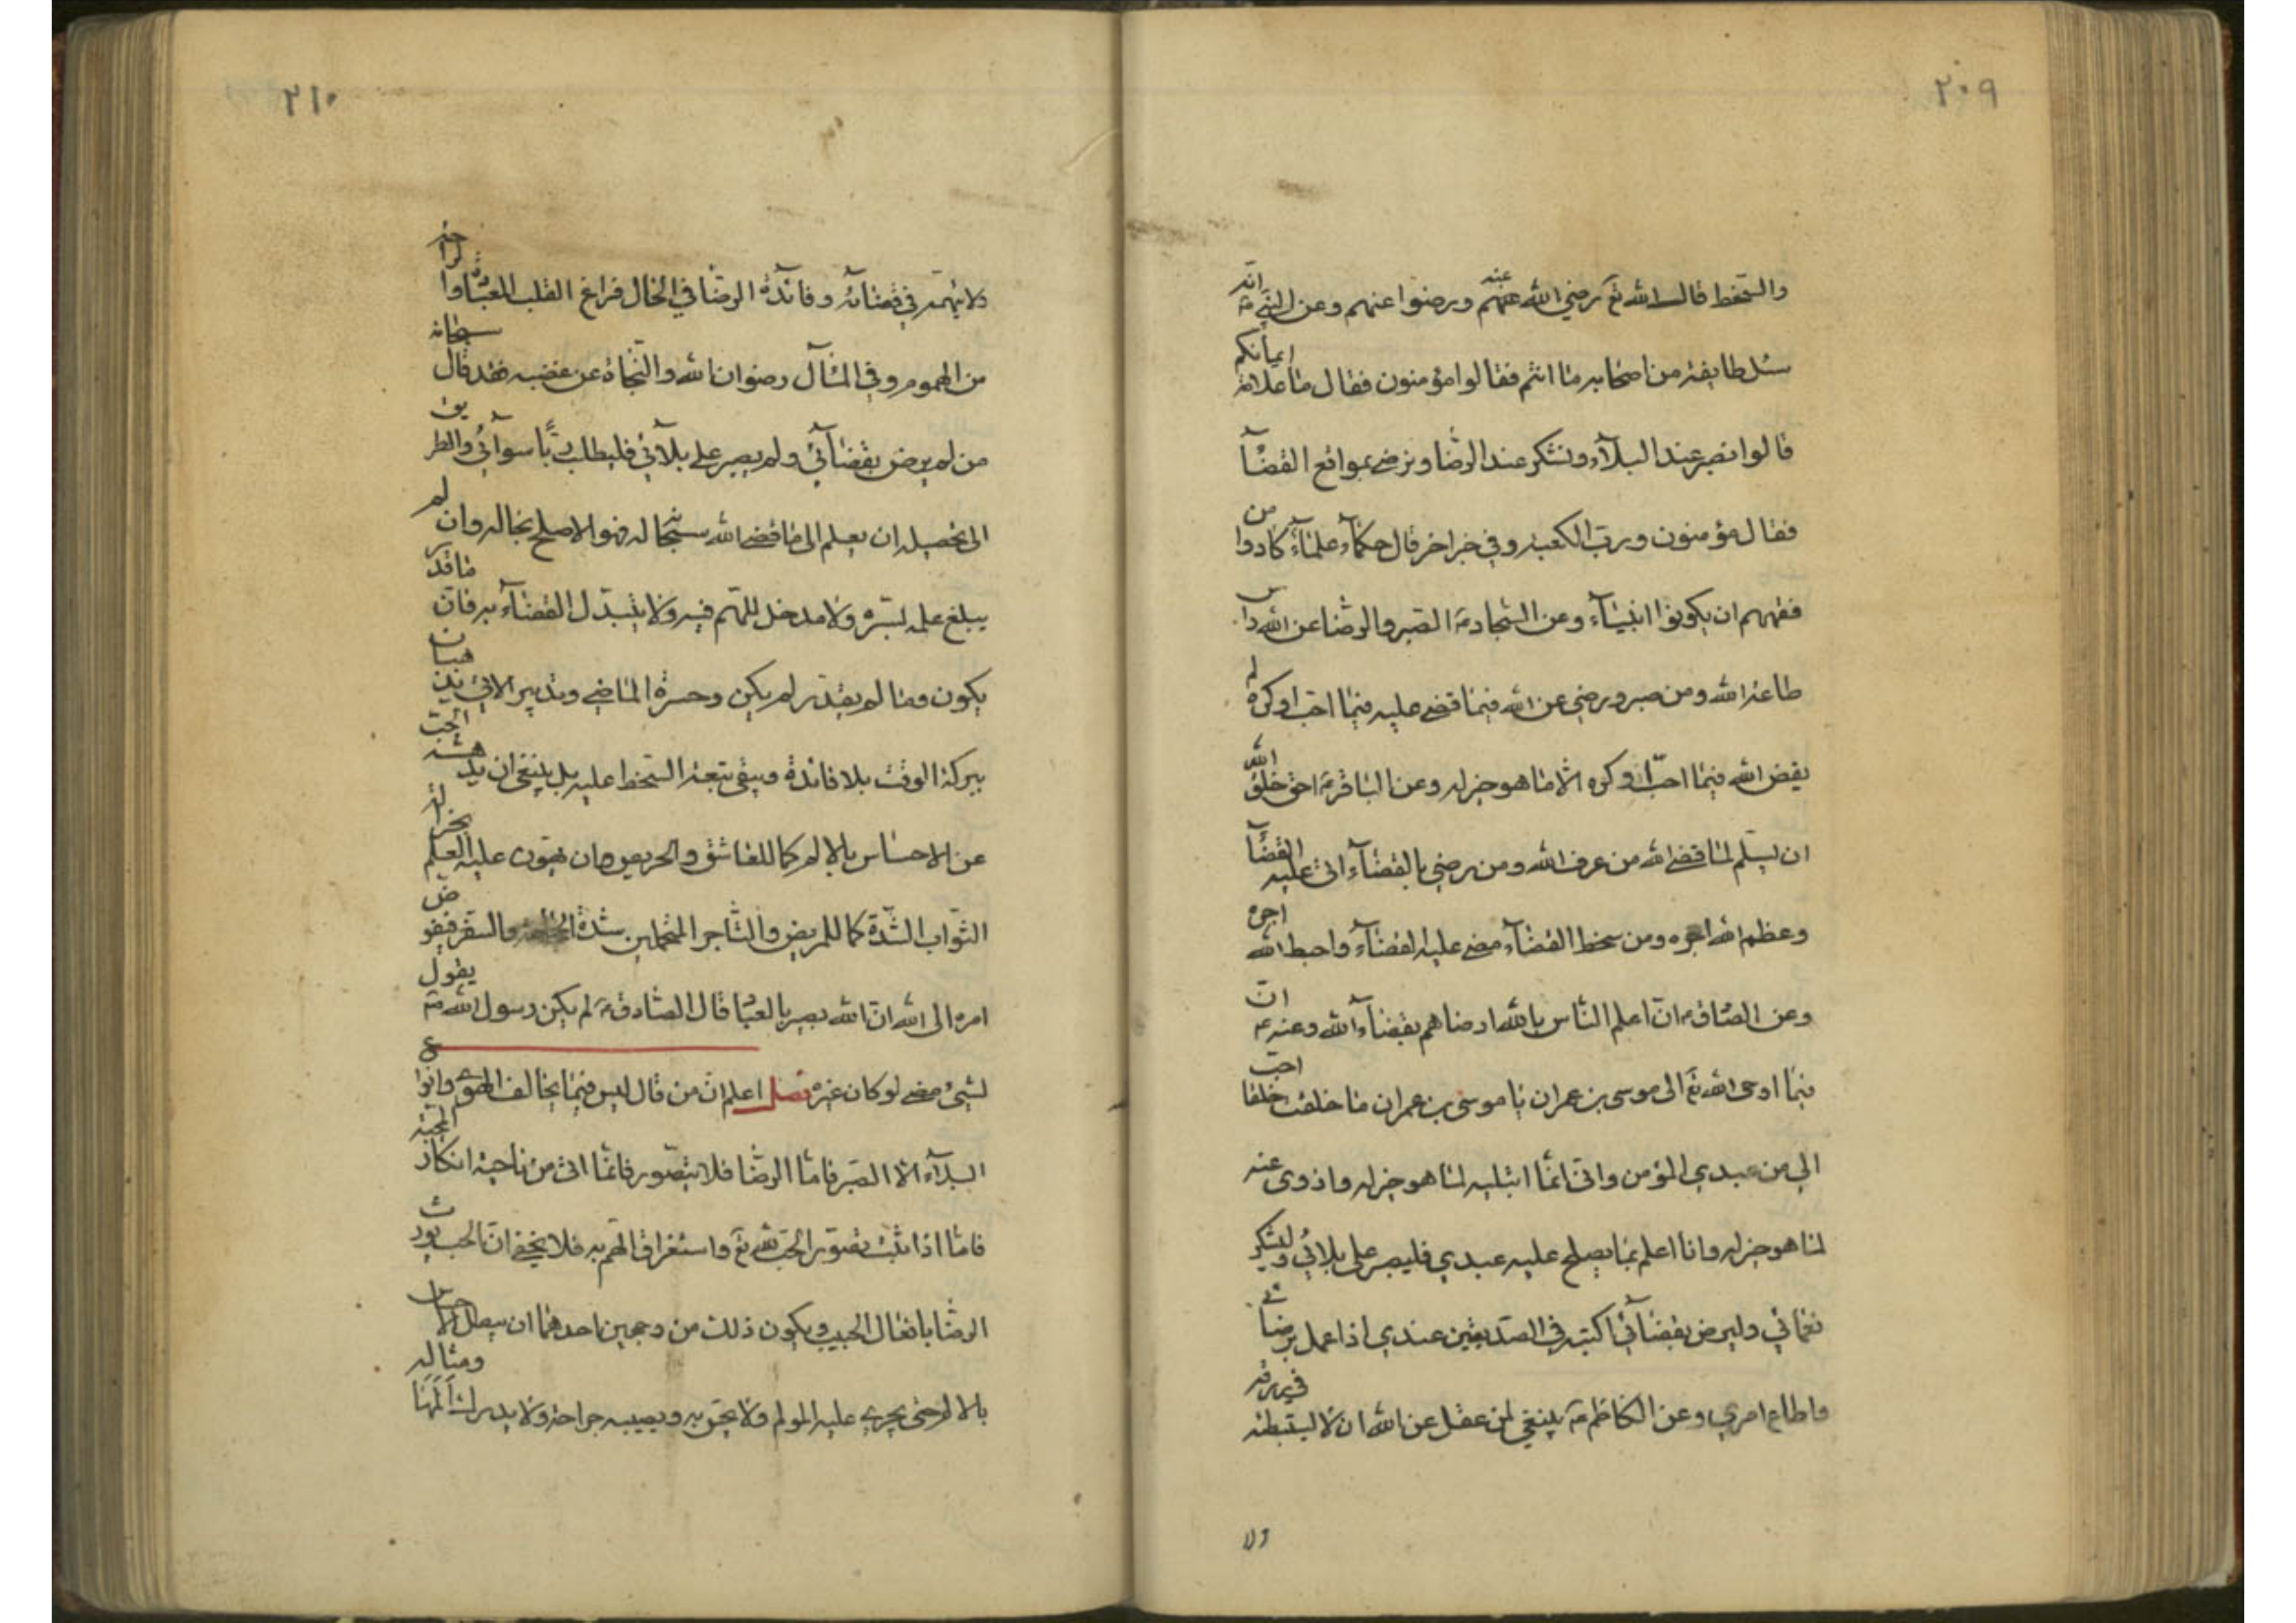 ٢٠٩
والسخط قال الله تع رضي الله عنهم ورضوا عنه وعن النبي ص انه
سئل طايفة من اصحابه ما انتم فقالوا مؤمنون فقال ما علامة ايمانكم
قالوا نصبر عند البلآء ونشكر عند الرضا ونرضى بمواقع القضآ
فقال مؤمنون ورب الكعبة وفي خبر اخر قال حكمآء علمآء كادوا من
فقههم ان يكونوا انبيآء وعن السجاد ع الصبر والرضا عن الله راس
طاعة الله ومن صبر ورضي عن الله فيما قضى عليه فيما احب او كره لم
يقض الله فيما احب او كره الا ما هو خير له وعن الباقر ع احق خلق الله
ان يسلم لما قضى الله من عرف الله ومن رضي بالقضآء اتى عليه القضآ
وعظم الله اجره ومن سخط القضآء مضى عليه القضآء واحبط الله اجره
وعن الصادق ع ان اعلم الناس بالله ارضاهم بقضآء الله وعنه ع ان
فيما اوحى الله تع الى موسى بن عمران يا موسى بن عمران ما خلقت خلقا احب
الي من عبدي المؤمن واني انما ابتليه لما هو خير له وازوي عنه
لما هو خير له وانا اعلم بما يصلح عليه عبدي فليصبر على بلائي وليشكر
نعمائي وليرض بقضآئي اكتبه في الصديقين عندي اذا عمل برضائي
واطاع امري وعن الكاظم ع ينبغي لمن عقل عن الله ان لا يستبطئه في رزقه
ولا
٢١٠
ولا يتهمه في قضآئه وفائدة الرضا في الحال فراغ القلب للعبادة والراحة
من الهموم وفي المآل رضوان الله والنجاة عن غضبه فقد قال سبحانه
من لم يرض بقضآئي ولم يصبر على بلآئي فليطلب ربا سوآئي والطريق
الى تحصيله ان يعلم الى ما قضى الله سبحانه له فهو الاصلح بحاله وان لم
يبلغ علمه بسره ولا مدخل للهم فيه ولا يتبدل القضآء به فان ما قدر
يكون وما لم يقدر لم يكن وحسرة الماضي وتدبير الاتي يذهبان
ببركة الوقت بلا فائدة ويبقى تبعة السخط عليه بل ينبغي ان يدهشه الحب
عن الاحساس بالالم كما للعاشق والحريص وان يهون عليه العلم بجزالة
الثواب الشدة كما للمريض والتاجر المتحملين شدة الحجامة والسفر فيفوض
امره الى الله ان الله بصير بالعباد قال الصادق ع لم يكن رسول الله ص يقول
لشيء مضى لو كان غيره فصل اعلم ان من قال ليس فيما يخالف الهوى وانواع
البلآء الا الصبر فاما الرضا فلا يتصور فانما اتى من ناحية انكار المحبة
فاما اذا ثبت تصور الحب لله تع واستغراق الهم به فلا يخفى ان الحب يورث
الرضا بافعال الحبيب ويكون ذلك من وجهين احدهما ان يبطل الاحساس
بالالم حتى يجري عليه المولم ولا يحس به ويصيبه جراحة ولا يدرك المها ومثاله